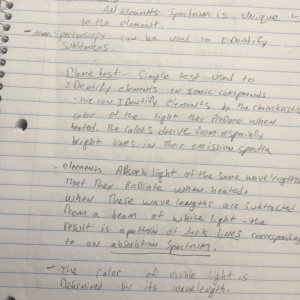 AN Elements Spectrum is Unique
to the element.
- Atomic Spectroscopy can be used to IDentify
Substances.
Flame test - Simple test used to
IDentify elements in Ionic compounds
- we can IDentify elements by the characteristic
color of the light they produce when
heated. The Colors derive from especially
bright lines in their emission spectra
- elements Absorb light of the same wavelengths
That They Radiate when heated.
when These wave lengths are subtracted
From a beam of white light - the
Result is a pattern of dark lines corresponding
to an absorbtion Spectrum.
- The Color of visible light is
Determined by its wavelength.